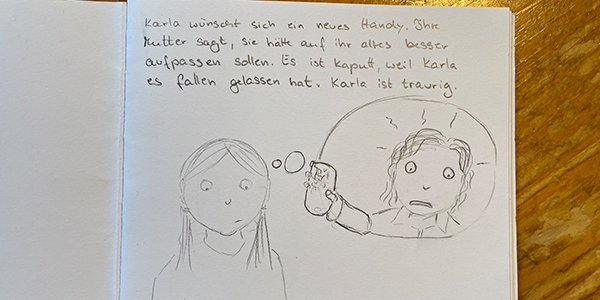 Karla wünscht sich ein neues Handy. Ihre
Mutter sagt, sie hätte auf ihr altes besser
aufpassen sollen. Es ist kaputt, weil Karla
es fallen gelassen hat. Karla ist traurig.